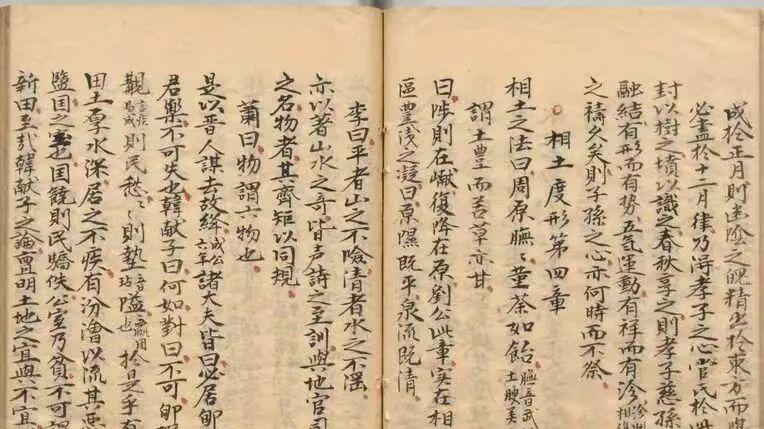 成於正月則幽陰之魄精出於東方而
必盡於十二月律乃得孝子之心管氏於此
封以樹之墳以識之春秋享之則孝子慈孫
融結有形而有勢五氣運動有祥而有沴
之禱久矣則子孫之心亦何時而不祭
相土度形第四章
相土之法曰周原膴〻堇荼如飴膴音武土腴美
謂土豊而苦草亦甘
曰陟則在巘復降在原劉公此章実在相
區豊浅之凝曰原隰既平泉流既清
李曰平者山之不險清者水之不滛
亦以著山水之奇皆声詩之至訓與地官司
之名物者其齊矩以同規
蕭曰物謂六物也
是以晋人謀去故絳成公六年諸大夫皆曰必居郇
君樂不可失也韓献子曰何如對曰不可郇
觀則民愁〻則墊隘於是乎有
田土厚水深居之不疾有汾澮以流其悪
盬国之宝也国饒則民驕佚公室乃貧不可謂
新田至哉韓献子之論亶明土地之宜與不宜